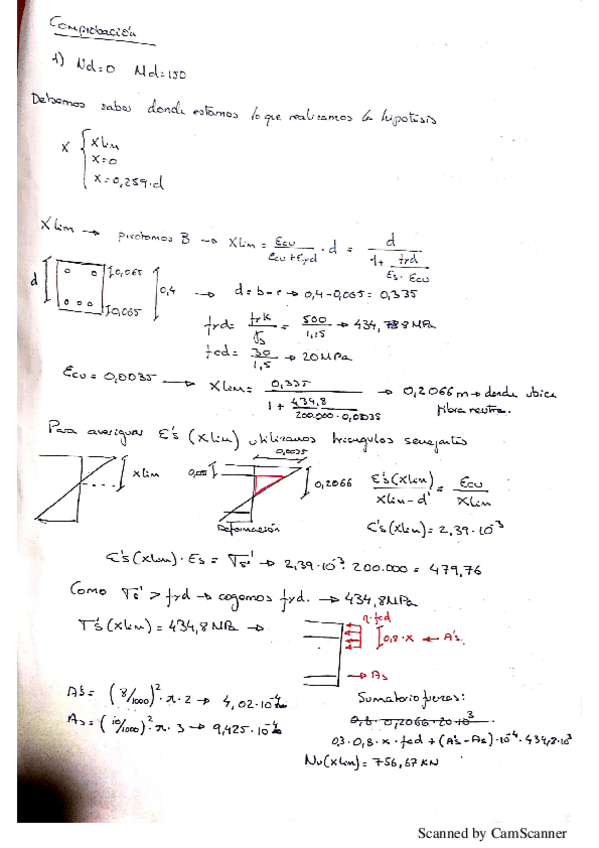 Comprobación
1) Nd=0 Md=150
Debemos saber donde estamos lo que realizamos la hipotesis
x { xlim
x=0
x=0,259·d
Xlim → pivotamos B → Xlim = Ecu / (Ecu + Eyd) · d = d / (1 + fyd / (Es · Ecu))
d 0,065 0,065 0,4 → d = b - r → 0,4 - 0,065 = 0,335
fyd = fyk / γs = 500 / 1,15 → 434,78 MPa
fcd = 30 / 1,5 → 20 MPa
Ecu = 0,0035 → Xlim = 0,335 / (1 + 434,8 / (200.000 · 0,0035)) → 0,2066 m → donde ubica fibra neutra.
Para averiguar E's (xlim) utilizamos triangulos semejantes
xlim 0,0035 0,2066 E's(xlim) / (xlim - d') = Ecu / xlim
Deformación
E's(xlim) = 2,39·10⁻³
E's(xlim) · Es = σs' → 2,39·10⁻³ · 200.000 = 479,76
Como σs' > fyd → cogemos fyd. → 434,8 MPa
σ's(xlim) = 434,8 MPa →
η·fcd
0,8·x ← A's
→ As
A's = (8/1000)² · π · 2 → 4,02·10⁻⁴
As = (10/1000)² · π · 3 → 9,425·10⁻⁴
Sumatorio fuerzas:
0,3·0,8·x·fcd + (A's - As)·10⁻⁴·434,8·10³
Nu(xlim) = 756,67 KN
Scanned by CamScanner